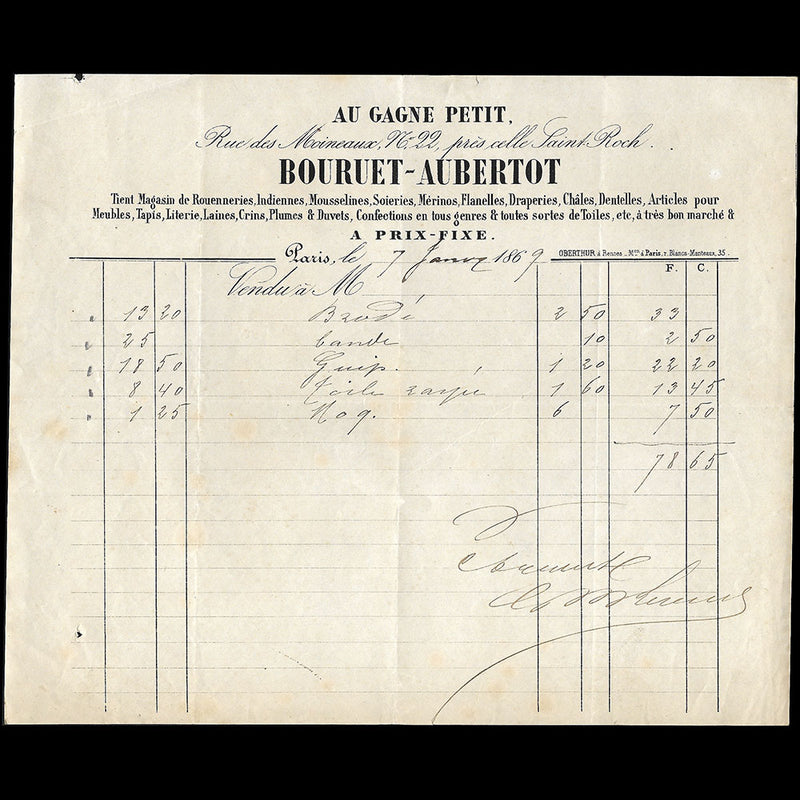 AU GAGNE PETIT,
Rue des Moineaux, No. 22, près celle Saint-Roch.
BOURUET-AUBERTOT
Tient Magasin de Rouenneries, Indiennes, Mousselines, Soieries, Mérinos, Flanelles, Draperies, Châles, Dentelles, Articles pour
Meubles, Tapis, Literie, Laines, Crins, Plumes & Duvets, Confections en tous genres & toutes sortes de Toiles, etc, à très bon marché &
A PRIX-FIXE.
Paris, le 7 Janv 1869 OBERTHUR à Rennes _ Mon à Paris, r. Blancs-Manteaux, 35.
F. C.
Vendu à M
13 20 Brodé 2 50 33
25 bande 10 2 50
18 50 Guip. 1 20 22 20
8 40 toile rayée 1 60 13 45
1 25 Nog. 6 7 50
78 65